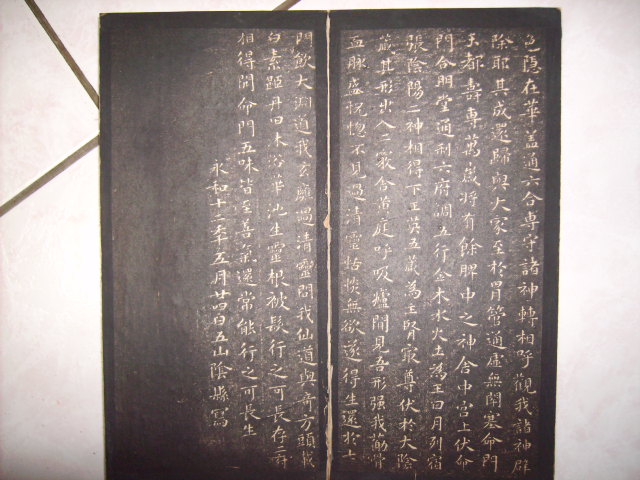 色隱在華蓋通六合專守諸神轉相呼觀我諸神辟
除耶其成還歸與大家至於胃管通虛無閉塞命門
玉都壽專萬歲將有餘脾中之神舍中宮上伏命
門合明堂通利六府調五行金木水火土為王日月列宿
張陰陽二神相得下玉英五藏為主腎最尊伏於大陰
藏其形出入二竅舍黃庭呼吸廬間見吾形强我筋骨
血脉盛恍惚不見過清靈恬惔無欲遂得生還於七
門飲大淵道我玄膺過清靈問我仙道與奇方頭載
白素距丹田沐浴華池生靈根被髮行之可長存二府
相得開命門五味皆至善氣還常能行之可長生
永和十二年五月廿四日五山陰縣寫